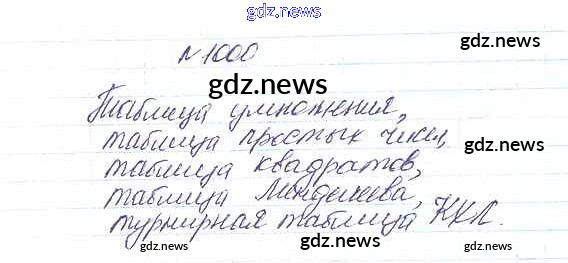 gdz.news
gdz.news
№1000
gdz.news
Таблица умножения,
таблица простых чисел,
gdz.news
gdz.news
таблица квадратов,
таблица Менделеева,
gdz.news
турнирная таблица КХЛ.
gdz.news
gdz.news
gdz.news